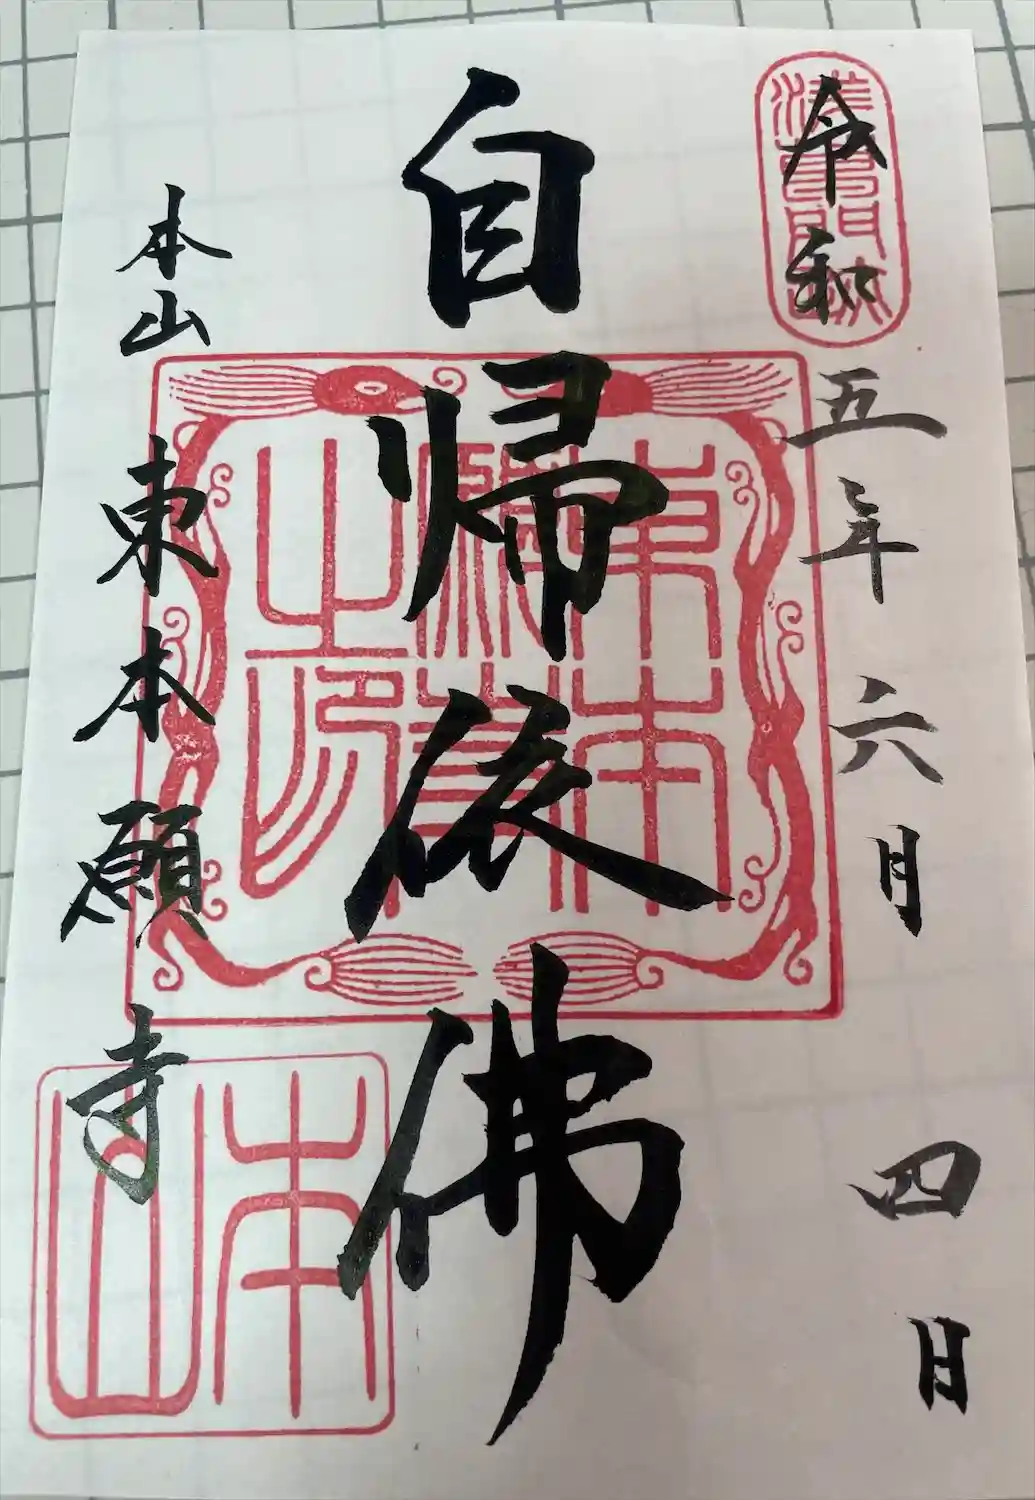 令和五年六月四日
浅草門跡
自帰依佛
東本
願寺
之印
本山東本願寺
本山